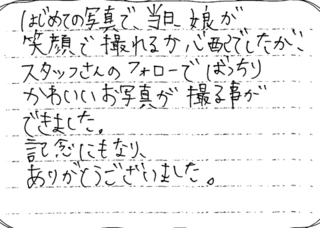 はじめての写真で、当日、娘が
笑顔で撮れるか心配でしたが、
スタッフさんのフォローでばっちり
かわいいお写真が撮る事が
できました。
記念にもなり、
ありがとうございました。